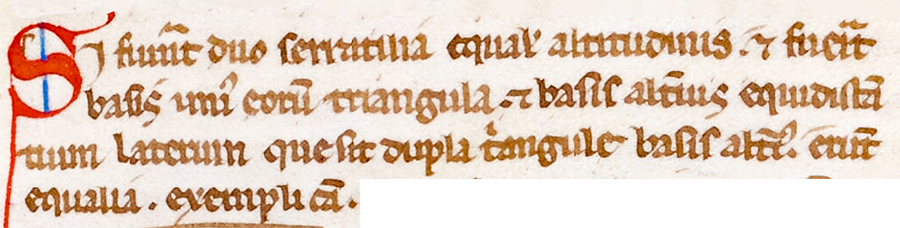 Si fuerit duo serratilia equalis altitudinis. ⁊ fuerit
basis unius eorum triangula. ⁊ basis alterius equidistan
tium laterum que sit dupla triangule basis alterius. erunt
equalia. exempli causa.